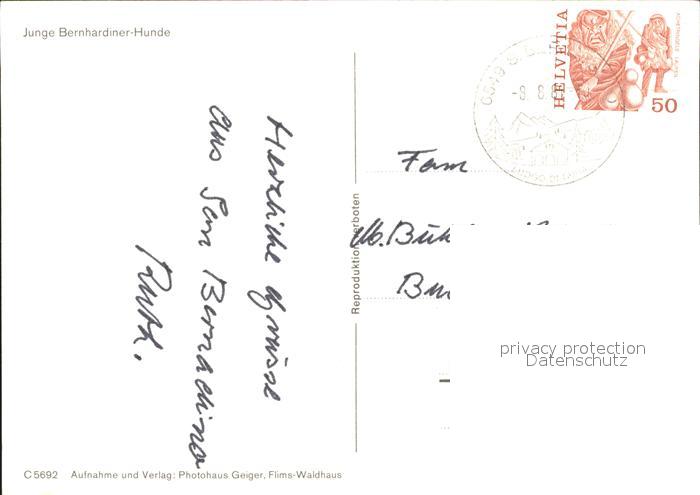 Junge Bernhardiner-Hunde
HELVETIA
50
6549 S.
-8.8.
Herzliche Grüsse
aus San Bernardino
Ruth.
Reproduktion verboten
Fam
M. Büh
privacy protection
Datenschutz
C 5692 Aufnahme und Verlag: Photohaus Geiger, Flims-Waldhaus